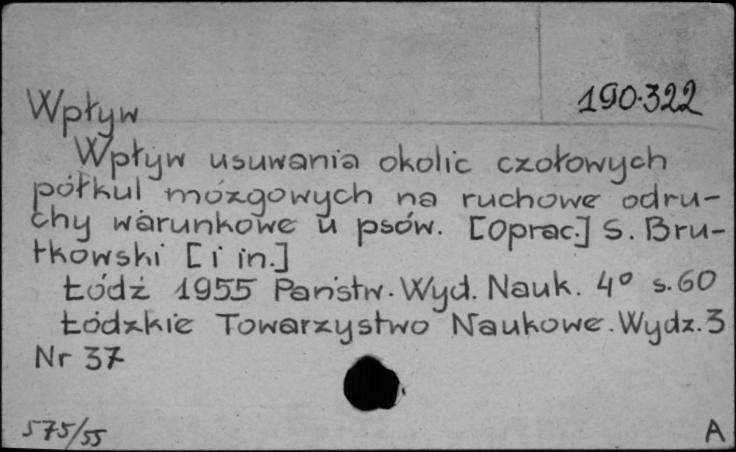 190.322
Wpływ
Wpływ usuwania okolic czołowych
półkul mózgowych na ruchowe odru-
chy warunkowe u psów. [Oprac.] S. Bru-
tkowski [i in.]
Łódź 1955 Państw. Wyd. Nauk. 4° s. 60
Łódzkie Towarzystwo Naukowe. Wydz. 3
Nr 37
575/55
A